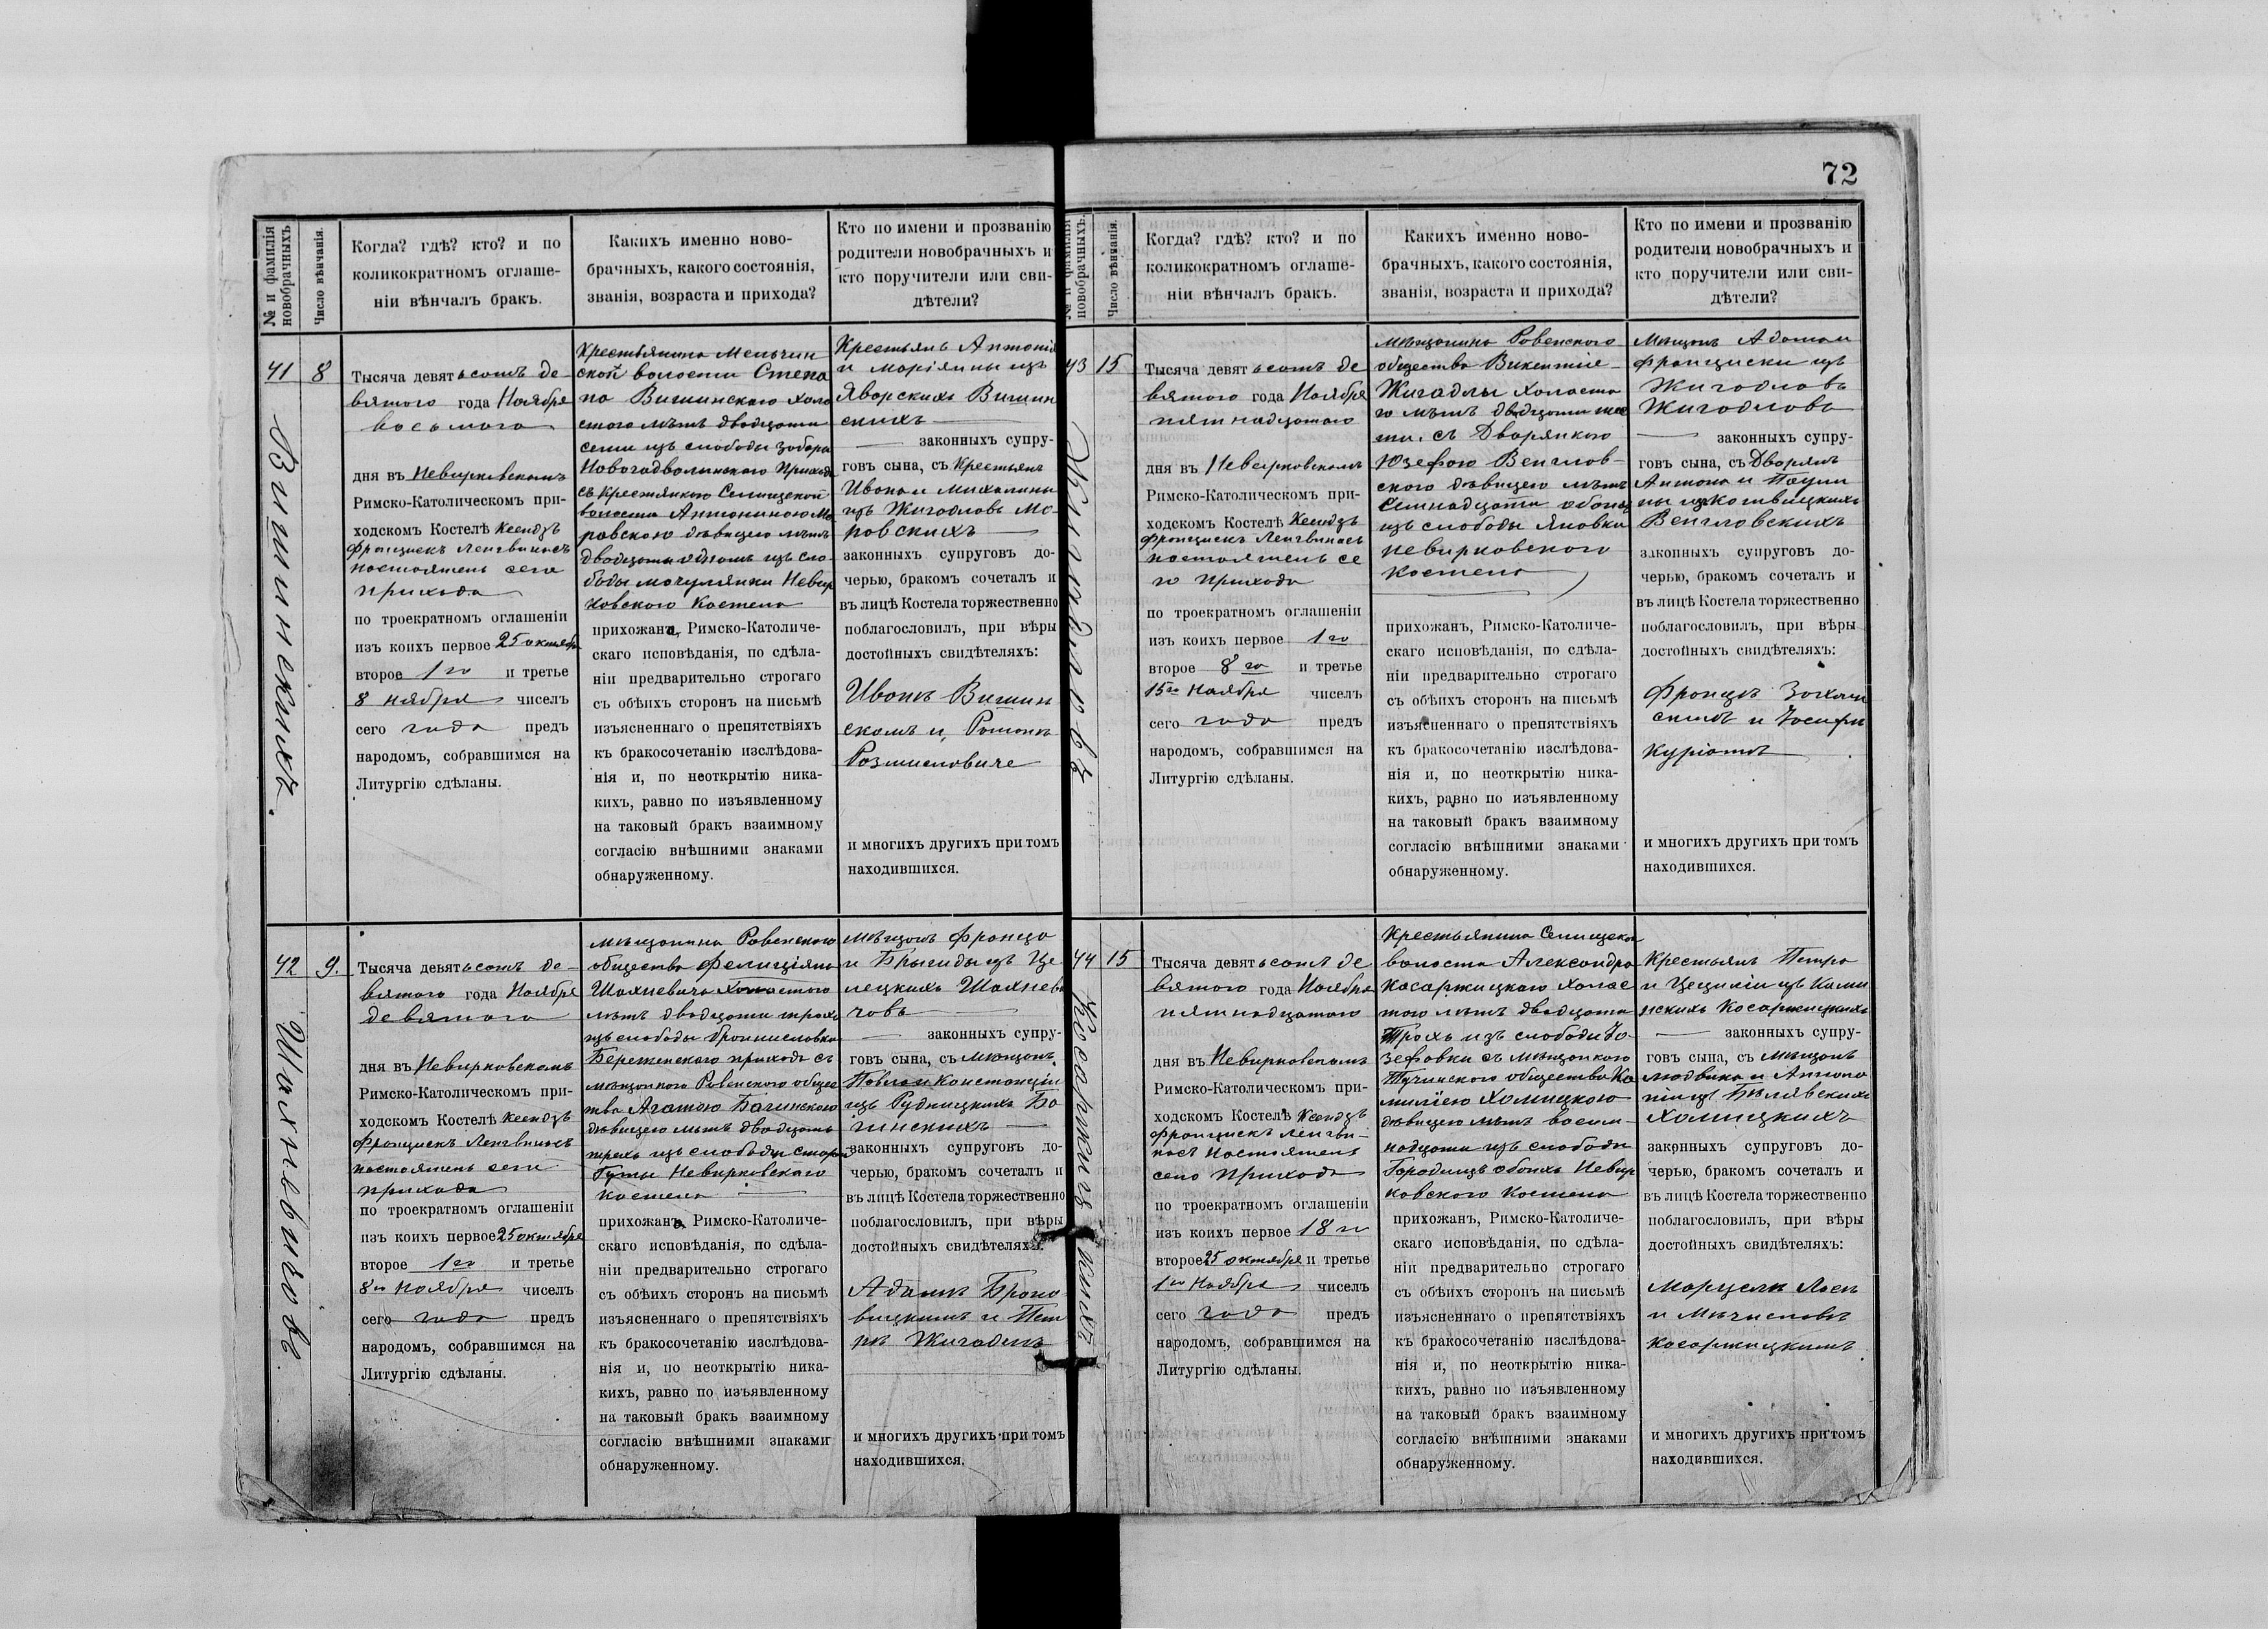 72
№ и фамилія
новобрачныхъ
Число вѣнчанія.
Когда? гдѣ? кто? и по
коликократномъ оглаше-
ніи вѣнчалъ бракъ.
Какихъ именно ново-
брачныхъ, какого состоянія,
званія, возраста и прихода?
Кто по имени и прозванію
родители новобрачныхъ и
кто поручители или сви-
дѣтели?
41
8
Вишинскихъ.
Тысяча девятьсотъ де-
вятого года Ноября
восьмого
дня въ Невирковскомъ
Римско-Католическомъ при-
ходскомъ Костелѣ Ксендзъ
Францискъ Ленгвинасъ
настоятель сего
прихода
по троекратномъ оглашеніи
изъ коихъ первое 25 октября
второе 1го и третье
8 ноября чиселъ
сего года предъ
народомъ, собравшимся на
Литургію сдѣланы.
Крестьянина Мельчин
ской волости Степа
на Вишинского холо
стого лѣтъ двадцати
семи изъ слободы Забара
Новоградволынского прихода
съ крестянкою Селищской
волости Антониною Мо
ровскою дѣвицею лѣтъ
двадцати одномъ изъ сло
боды Мочулянки Невир
ковского Костела
прихожанъ, Римско-Католиче-
скаго исповѣданія, по сдѣла-
ніи предварительно строгаго
съ обѣихъ сторонъ на письмѣ
изъясненнаго о препятствіяхъ
къ бракосочетанію изслѣдова-
нія и, по неоткрытію ника-
кихъ, равно по изъявленному
на таковый бракъ взаимному
согласію внѣшними знаками
обнаруженному.
Крестьянъ Антонія
и Маріянны изъ
Яворскихъ Вишин
скихъ
законныхъ супру-
говъ сына, съ Крестьянъ
Ивана и Михалины
изъ Жигадловъ Мо-
ровскихъ
законныхъ супруговъ до-
черью, бракомъ сочеталъ и
въ лицѣ Костела торжественно
поблагословилъ, при вѣры
достойныхъ свидѣтеляхъ:
Иваномъ Вишин
скомъ и Романъ
Розмисловиче
и многихъ другихъ при томъ
находившихся.
42
9.
Шахневичовъ
Тысяча девятьсотъ де-
вятого года Ноября
девятого
дня въ Невирковскомъ
Римско-Католическомъ при-
ходскомъ Костелѣ Ксендзъ
Францискъ Ленгвинасъ
настоятель сего
прихода
по троекратномъ оглашеніи
изъ коихъ первое 25 октября
второе 1го и третье
8го Ноября чиселъ
сего года предъ
народомъ, собравшимся на
Литургію сдѣланы.
Мѣщанина Ровенского
общества Фелиціяна
Шахневича холостого
лѣтъ двадцати трохъ
изъ слободы Брониславки
Березенского прихода съ
мѣщанкою Ровенского общес
тва Агатою Багинского
дѣвицею лѣтъ двадцать
трехъ изъ слободы Старой
Гуты Невирковского
костела
прихожанъ, Римско-Католиче-
скаго исповѣданія, по сдѣла-
ніи предварительно строгаго
съ обѣихъ сторонъ на письмѣ
изъясненнаго о препятствіяхъ
къ бракосочетанію изслѣдова-
нія и, по неоткрытію ника-
кихъ, равно по изъявленному
на таковый бракъ взаимному
согласію внѣшними знаками
обнаруженному.
Мѣщанъ Франца
и Бригиды изъ Це
лецкихъ Шахневи
човъ
законныхъ супру-
говъ сына, съ мѣщанъ
Павла и Констанціи
изъ Рудницкихъ Ба
гинскихъ
законныхъ супруговъ до-
черью, бракомъ сочеталъ и
въ лицѣ Костела торжественно
поблагословилъ, при вѣры
достойныхъ свидѣтеляхъ:
Адамъ Броно
вицкимъ и Пет
ръ Жигадель
и многихъ другихъ при томъ
находившихся.
№ и фамилія
новобрачныхъ.
Число вѣнчанія.
Когда? гдѣ? кто? и по
коликократномъ оглаше-
ніи вѣнчалъ бракъ.
Какихъ именно ново-
брачныхъ, какого состоянія,
званія, возраста и прихода?
Кто по имени и прозванію
родители новобрачныхъ и
кто поручители или сви-
дѣтели?
43
15
Жигадловъ
Тысяча девятьсотъ де
вятого года Ноября
пятнадцатого
дня въ Невирковскомъ
Римско-Католическомъ при-
ходскомъ Костелѣ Ксендзъ
Францискъ Ленгвинасъ
настоятель се
го прихода
по троекратномъ оглашеніи
изъ коихъ первое 1го
второе 8го и третье
15го Ноября чиселъ
сего года предъ
народомъ, собравшимся на
Литургію сдѣланы.
Мѣщанина Ровенского
общества Викентіе-
Жигадлы холоста
го лѣтъ двадцати шес
ти, съ Дворянкою
Юзефою Венглов-
ского дѣвицею лѣтъ
семнадцати обоихъ
изъ слободы Яновки
Невирковского
костела
прихожанъ, Римско-Католиче-
скаго исповѣданія, по сдѣла-
ніи предварительно строгаго
съ обѣихъ сторонъ на письмѣ
изъясненнаго о препятствіяхъ
къ бракосочетанію изслѣдова-
нія и, по неоткрытію ника-
кихъ, равно по изъявленному
на таковый бракъ взаимному
согласію внѣшними знаками
обнаруженному.
Мѣщанъ Адама и
Франциски изъ
Жигадловъ
Жигадловъ
законныхъ супру-
говъ сына, съ Дворянъ
Антона и Паули
ны изъ Котвицкихъ
Венгловскихъ
законныхъ супруговъ до-
черью, бракомъ сочеталъ и
въ лицѣ Костела торжественно
поблагословилъ, при вѣры
достойныхъ свидѣтеляхъ:
Францъ
и Іосифъ
Куріатъ
и многихъ другихъ при томъ
находившихся.
44
15
Косаржицкихъ
Тысяча девятьсотъ де
вятого года Ноября
пятнадцатого
дня въ Невирковскомъ
Римско-Католическомъ при-
ходскомъ Костелѣ Ксендзъ
Францискъ Ленгви-
насъ настоятель
сего прихода
по троекратномъ оглашеніи
изъ коихъ первое 18го
второе 25 октября и третье
1го Ноября чиселъ
сего года предъ
народомъ, собравшимся на
Литургію сдѣланы.
Крестьянина Селищской
волости Александра
Косаржицкого холос
того лѣтъ двадцати
трохъ изъ слободы Ю-
зефовки съ мѣщанкою
Тучинского общества Ка
милиею Холицкою
дѣвицею лѣтъ восем-
надцати изъ слободы
Городищъ обоихъ Невир
ковского Костела
прихожанъ, Римско-Католиче-
скаго исповѣданія, по сдѣла-
ніи предварительно строгаго
съ обѣихъ сторонъ на письмѣ
изъясненнаго о препятствіяхъ
къ бракосочетанію изслѣдова-
нія и, по неоткрытію ника-
кихъ, равно по изъявленному
на таковый бракъ взаимному
согласію внѣшними знаками
обнаруженному.
Крестьянъ Петра
и Цециліи изъ Ками
нскихъ Косаржицкихъ
законныхъ супру-
говъ сына, съ мѣщанъ
Людвика и Антони
ны изъ Билявскихъ
Холицкихъ
законныхъ супруговъ до-
черью, бракомъ сочеталъ и
въ лицѣ Костела торжественно
поблагословилъ, при вѣры
достойныхъ свидѣтеляхъ:
Марцели
и Мечиславъ
Косаржицкимъ
и многихъ другихъ при томъ
находившихся.